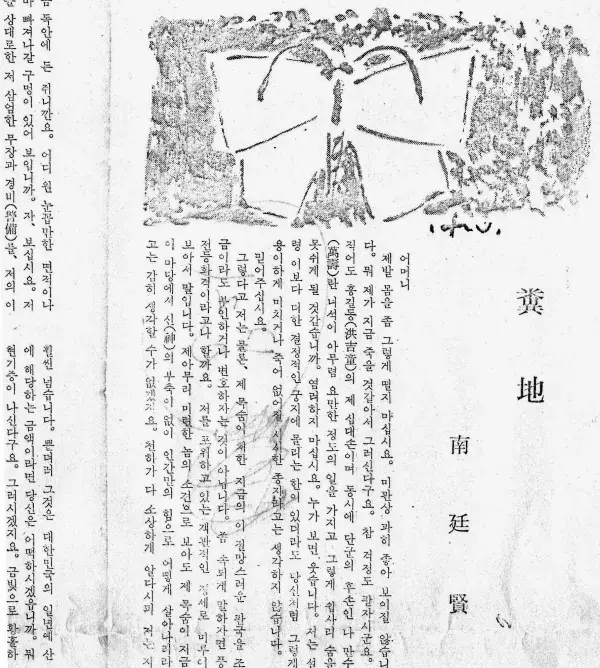 糞地
南廷賢
어머니
제발 몸을 좀 그렇게 떨지 마십시요. 미관상 과히 좋아 보이질 않습니
다. 뭐 제가 지금 죽을 것같아서 그러신다구요. 참 걱정도 팔자시군요.
적어도 홍길동(洪吉童)의 제 십대손이며 동시에 단군의 후손인 나 만수
(萬壽)란 녀석이 아무렴 요만한 정도의 일을 가지고 그렇게 쉽사리 숨을
못쉬게 될 것같습니까. 염려하지 마십시요. 누가 보면 웃습니다. 저는 설
령 이보다 더한 결정적인 궁지에 몰리는 한이 있더라도 당신처럼 그렇게
용이하게 미치거나 죽어 없어질 시시한 종자라고는 생각하지 않습니다.
믿어주십시요.
그렇다고 저는 물론, 제 목숨이 처한 지금의 이 절망스러운 판국을 조
금이라도 부인하거나 변호하자는 것이 아닙니다. 좀 속되게 말하자면 풍
전등화격이라고나 할까요. 저를 포위하고 있는 객관적인 정세로 미루어
보아서 말입니다. 제아무리 미련한 놈의 소견으로 보아도 제 목숨이 지금
이 마당에서 신(神)의 부축이 없이 인간만의 힘으로 어떻게 살아나리라
고는 감히 생각할 수가 없겠지요. 천하가 다 소상하게 알다시피 저는 지
금 독안에 든 쥐니깐요. 어디 원 눈꼽만한 면적이나
마 빠져나갈 구멍이 있어 보입니까. 자, 보십시요. 저
상대로한 저 삼엄한 무장과 경비(警備)를, 저의 이
훨씬 넘습니다. 뿐더러 그것은 대한민국의 일년예산
에 해당하는 금액이라면 당신은 어떡하시겠습니까. 뭐
현기증이 나신다구요. 그러시겠지요. 금빛으로 황홀하